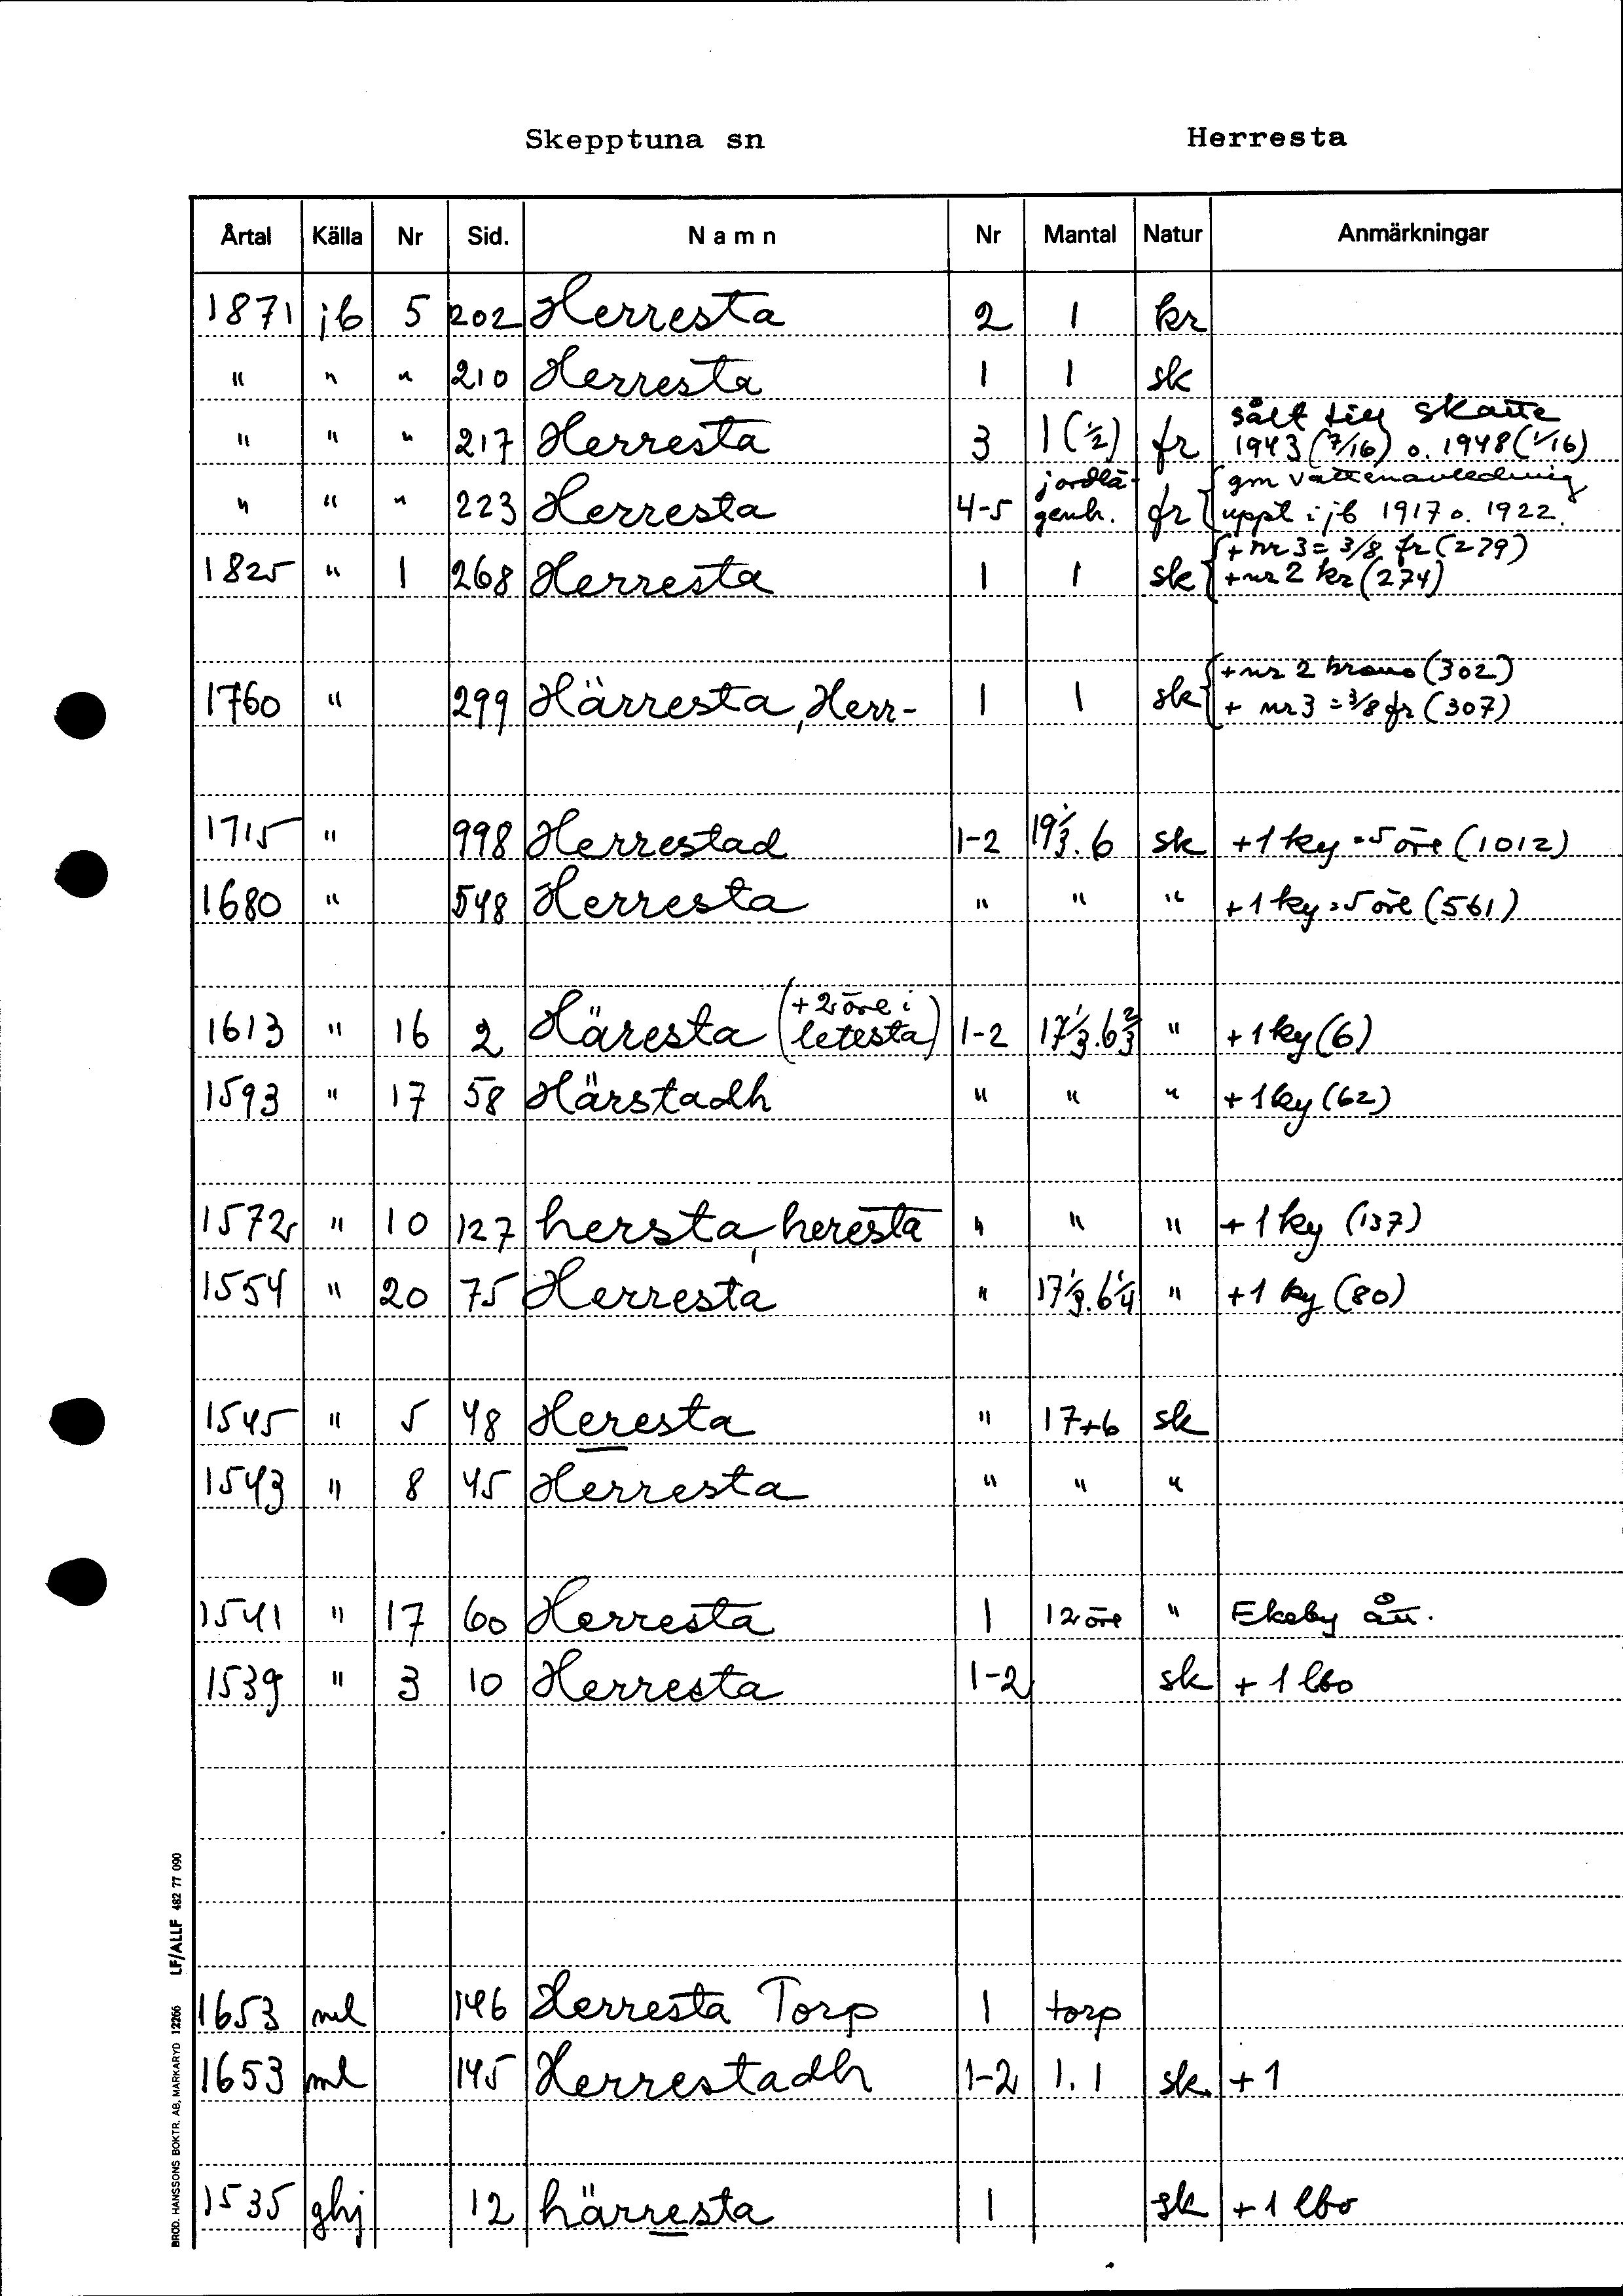 Skepptuna sn Herresta
Årtal Källa Nr Sid. Namn Nr Mantal Natur Anmärkningar
1871 jb 5 202 Herresta 2 1 kr
" " " 210 Herresta 1 1 sk
" " " 217 Herresta 3 1 (1/2) fr sålt till skatte
1943 (7/16) o. 1948 (1/16)
" " " 223 Herresta 4-5 jordlä- fr gm vattenavledning
genh. uppl i jb 1917 o. 1922.
+ nr 3 = 3/8 fr (279)
1825 " 1 268 Herresta 1 1 sk + nr 2 kr (274)
+ nr 2 krono (302)
1760 " 299 Härresta, Herr- 1 1 sk + nr 3 = 3/8 fr (307)
1715 " 998 Herrestad 1-2 19 1/3. 6 sk +1 ky = 5 öre (1012)
1680 " 548 Herresta " " " +1 ky = 5 öre (561)
(+2 öre i
1613 " 16 2 Häresta letesta) 1-2 17 1/3. 6 2/3 " +1 ky (6)
1593 " 17 58 Härstadh " " " +1 ky (62)
1572 " 10 127 hersta, heresta " " " +1 ky (137)
1554 " 20 75 Herresta " 17 1/3. 6 1/4 " +1 ky (80)
1545 " 5 48 Heresta " 17+6 sk
1543 " 8 45 Herresta " " "
1541 " 17 60 Herresta 1 12 öre " Ekeby ått.
1539 " 3 10 Herresta 1-2 sk + 1 lbo
1653 ml 146 Herresta Torp 1 torp
1653 ml 145 Herrestadh 1-2 1. 1 sk. +1
1535 ghj 12 härresta 1 sk +1 lbo
BROD. HANSSONS BOKTR. AB, MARKARYD 12266 LF/ALLF 482 77 090